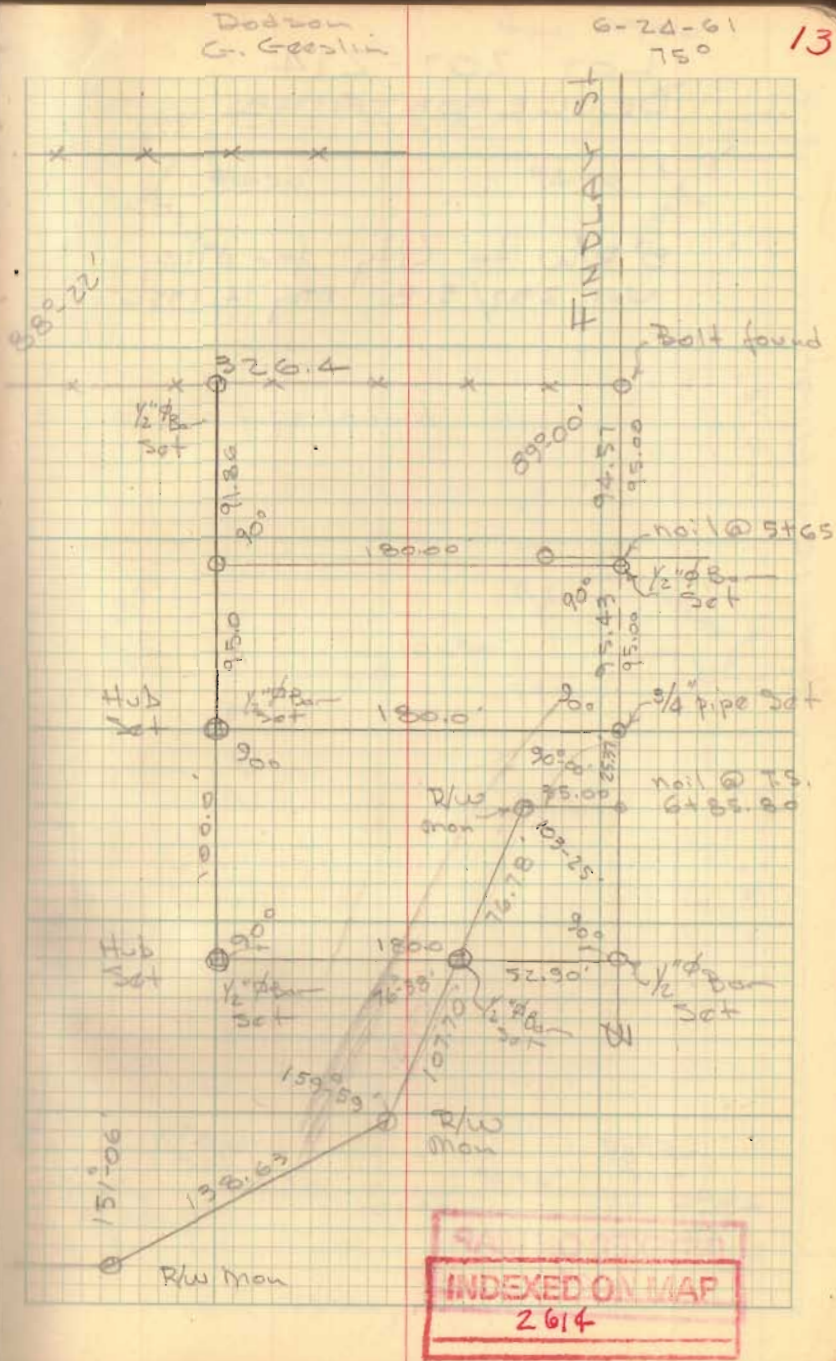 Dodson
G. Geeslin
6-24-61
75°
13
FINDLAY St
88°-22'
326.4
Bolt found
1/2" φ Bar
Set
89°00'
91.86
94.57
95.00
90°
nail @ 5+65
180.00
1/2" φ Bar
Set
90°
95.0
95.43
95.00
Hub
Set
1/2" φ Bar
Set
180.0'
90°
3/4" pipe Set
90°
90°-00'
25.37'
R/W
mon
35.00
nail @ T.S.
6+85.80
100.0'
103-25'
76.78'
Hub
Set
90°
180.0
90°
52.90'
1/2" φ Bar
Set
1/2" φ Bar
Set
1/2" φ Bar
Set
107.70'
159°-59'
R/W
Mon
151°-06'
138.63
R/W Mon
INDEXED ON MAP
2614